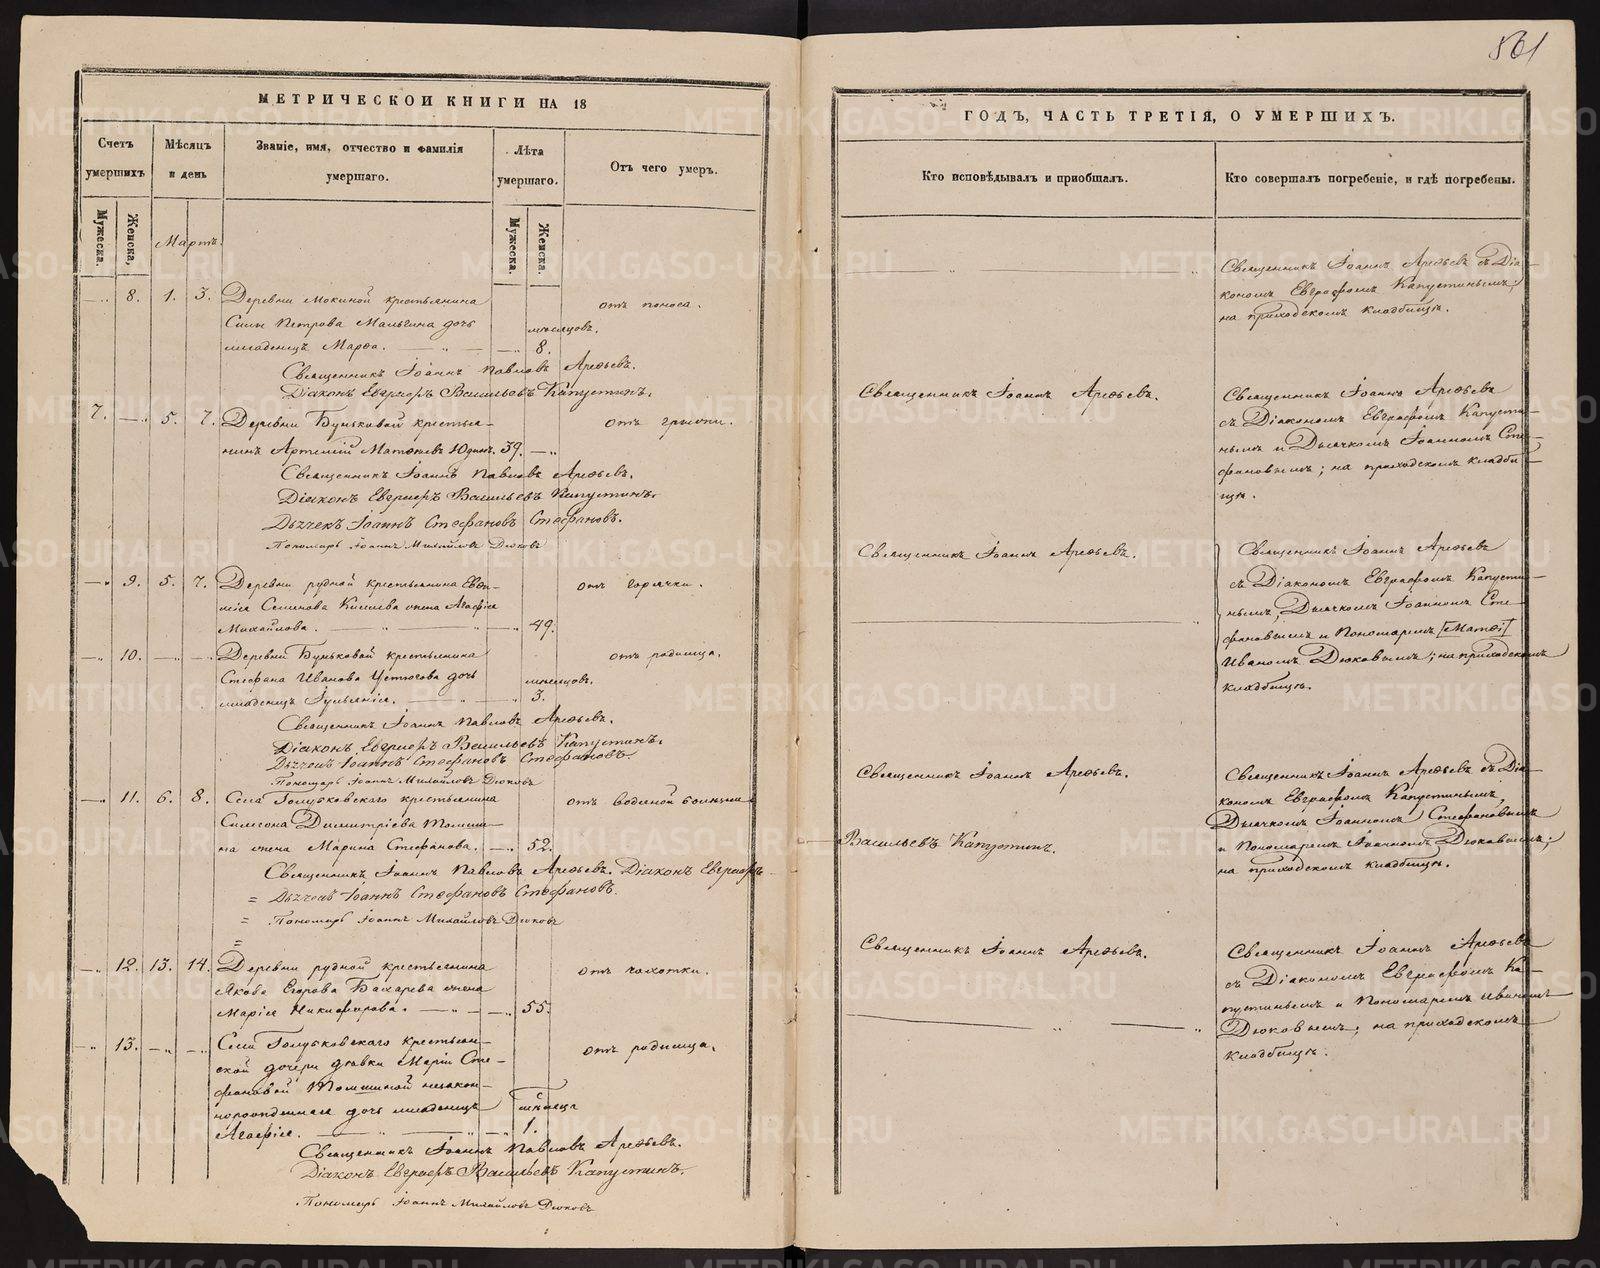 561
МЕТРИЧЕСКОИ КНИГИ НА 18
Счетъ умершихъ
Мѣсяцъ и день
Званіе, имя, отчество и фамилія умершаго.
Лѣта умершаго.
Отъ чего умеръ.
Мужеска.
Женска,
Мартъ.
Мужеска.
Женска.
8. 1. 3. Деревни Мокиной крестьянина отъ поноса.
Силы Петрова Мальгина дочь мѣсяцовъ.
младенецъ Марѳа. 8.
Священникъ Іоаннъ Павловъ Арефьевъ.
Діаконъ Евграфъ Васильевъ Капустинъ.
7. 5. 7. Деревни Буньковой крестья- отъ грыжи.
нинъ Артемій Матѳѣевъ Юдинъ. 39.
Священникъ Іоаннъ Павловъ Арефьевъ.
Діаконъ Евграфъ Васильевъ Капустинъ.
Дьячекъ Іоаннъ Стефановъ Стефановъ.
Пономарь Іоаннъ Михайловъ Дюковъ
9. 5. 7. Деревни рудной крестьянина отъ горячки.
Семенова жена Агафія
Михайлова. 49.
10. Деревни Буньковой крестьянина отъ родимца.
Стефана Иванова дочь мѣсяцовъ.
младенецъ Іуліанія. 3.
Священникъ Іоаннъ Павловъ Арефьевъ.
Діаконъ Евграфъ Васильевъ Капустинъ.
Дьячекъ Іоаннъ Стефановъ Стефановъ.
Пономарь Іоаннъ Михайловъ Дюковъ
11. 6. 8. Села Голубковскаго крестьянина отъ водяной болѣзни
Симеона Димитріева Томши-
на жена Марина Стефанова. 52.
Священникъ Іоаннъ Павловъ Арефьевъ. Діаконъ Евграфъ
= Дьячекъ Іоаннъ Стефановъ Стефановъ.
= Пономарь Іоаннъ Михайловъ Дюковъ
=
12. 13. 14. Деревни рудной крестьянина отъ чахотки.
Якова Егорова Бахарева жена
Марія Никифорова. 55.
13. Села Голубковскаго крестьян- отъ родимца.
ской дочери дѣвки Маріи Сте-
фановой Томшиной незакон-
норожденная дочь младенецъ мѣсяца
Агафія. 1.
Священникъ Іоаннъ Павловъ Арефьевъ.
Діаконъ Евграфъ Васильевъ Капустинъ.
Пономарь Іоаннъ Михайловъ Дюковъ
ГОДЪ, ЧАСТЬ ТРЕТІЯ, О УМЕРШИХЪ.
Кто исповѣдывалъ и пріобщалъ.
Кто совершалъ погребеніе, и гдѣ погребены.
Священникъ Іоаннъ Арефьевъ съ Діа-
кономъ Евграфомъ Капустинымъ;
на приходскомъ кладбищѣ.
Священникъ Іоаннъ Арефьевъ.
Священникъ Іоаннъ Арефьевъ
съ Діакономъ Евграфомъ Капусти-
нымъ и Дьячкомъ Іоанномъ Сте-
фановымъ; на приходскомъ кладби-
щѣ.
Священникъ Іоаннъ Арефьевъ.
Священникъ Іоаннъ Арефьевъ
съ Діакономъ Евграфомъ Капусти-
нымъ, Дьячкомъ Іоанномъ Сте-
фановымъ и Пономаремъ [Матѳі]
Иваномъ Дюковымъ; на приходскомъ
кладбищѣ.
Священникъ Іоаннъ Арефьевъ.
Васильевъ Капустинъ.
Священникъ Іоаннъ Арефьевъ съ Діа-
кономъ Евграфомъ Капустинымъ,
Дьячкомъ Іоанномъ Стефановымъ
и Пономаремъ Іоанномъ Дюковымъ;
на приходскомъ кладбищѣ.
Священникъ Іоаннъ Арефьевъ.
Священникъ Іоаннъ Арефьевъ
съ Діакономъ Евграфомъ Ка-
пустинымъ и Пономаремъ Иваномъ
Дюковымъ; на приходскомъ
кладбищѣ.
METRIKI.GASO-URAL.RU